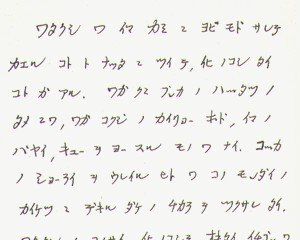 ワタクシ ワ イマ カミ ニ ヨビ モドサレテ
カエル コト ト ナッタ ニ ツイテ, 化ノコシ タイ
コト ガ アル. ワガ クニ ブンカ ノ ハッタツ ノ
タメ ニワ, ワガ コクジ ノ カイリョー ホド, イマ ノ
バヤイ, キュー ヲ ヨースル モノ ワ ナイ. コッカ
ノ ショーライ ヲ ウレイル ヒト ワ コノ モンダイ ノ
カイケツ ニ デキル ダケ ノ チカラ ヲ ツクサレ タイ.